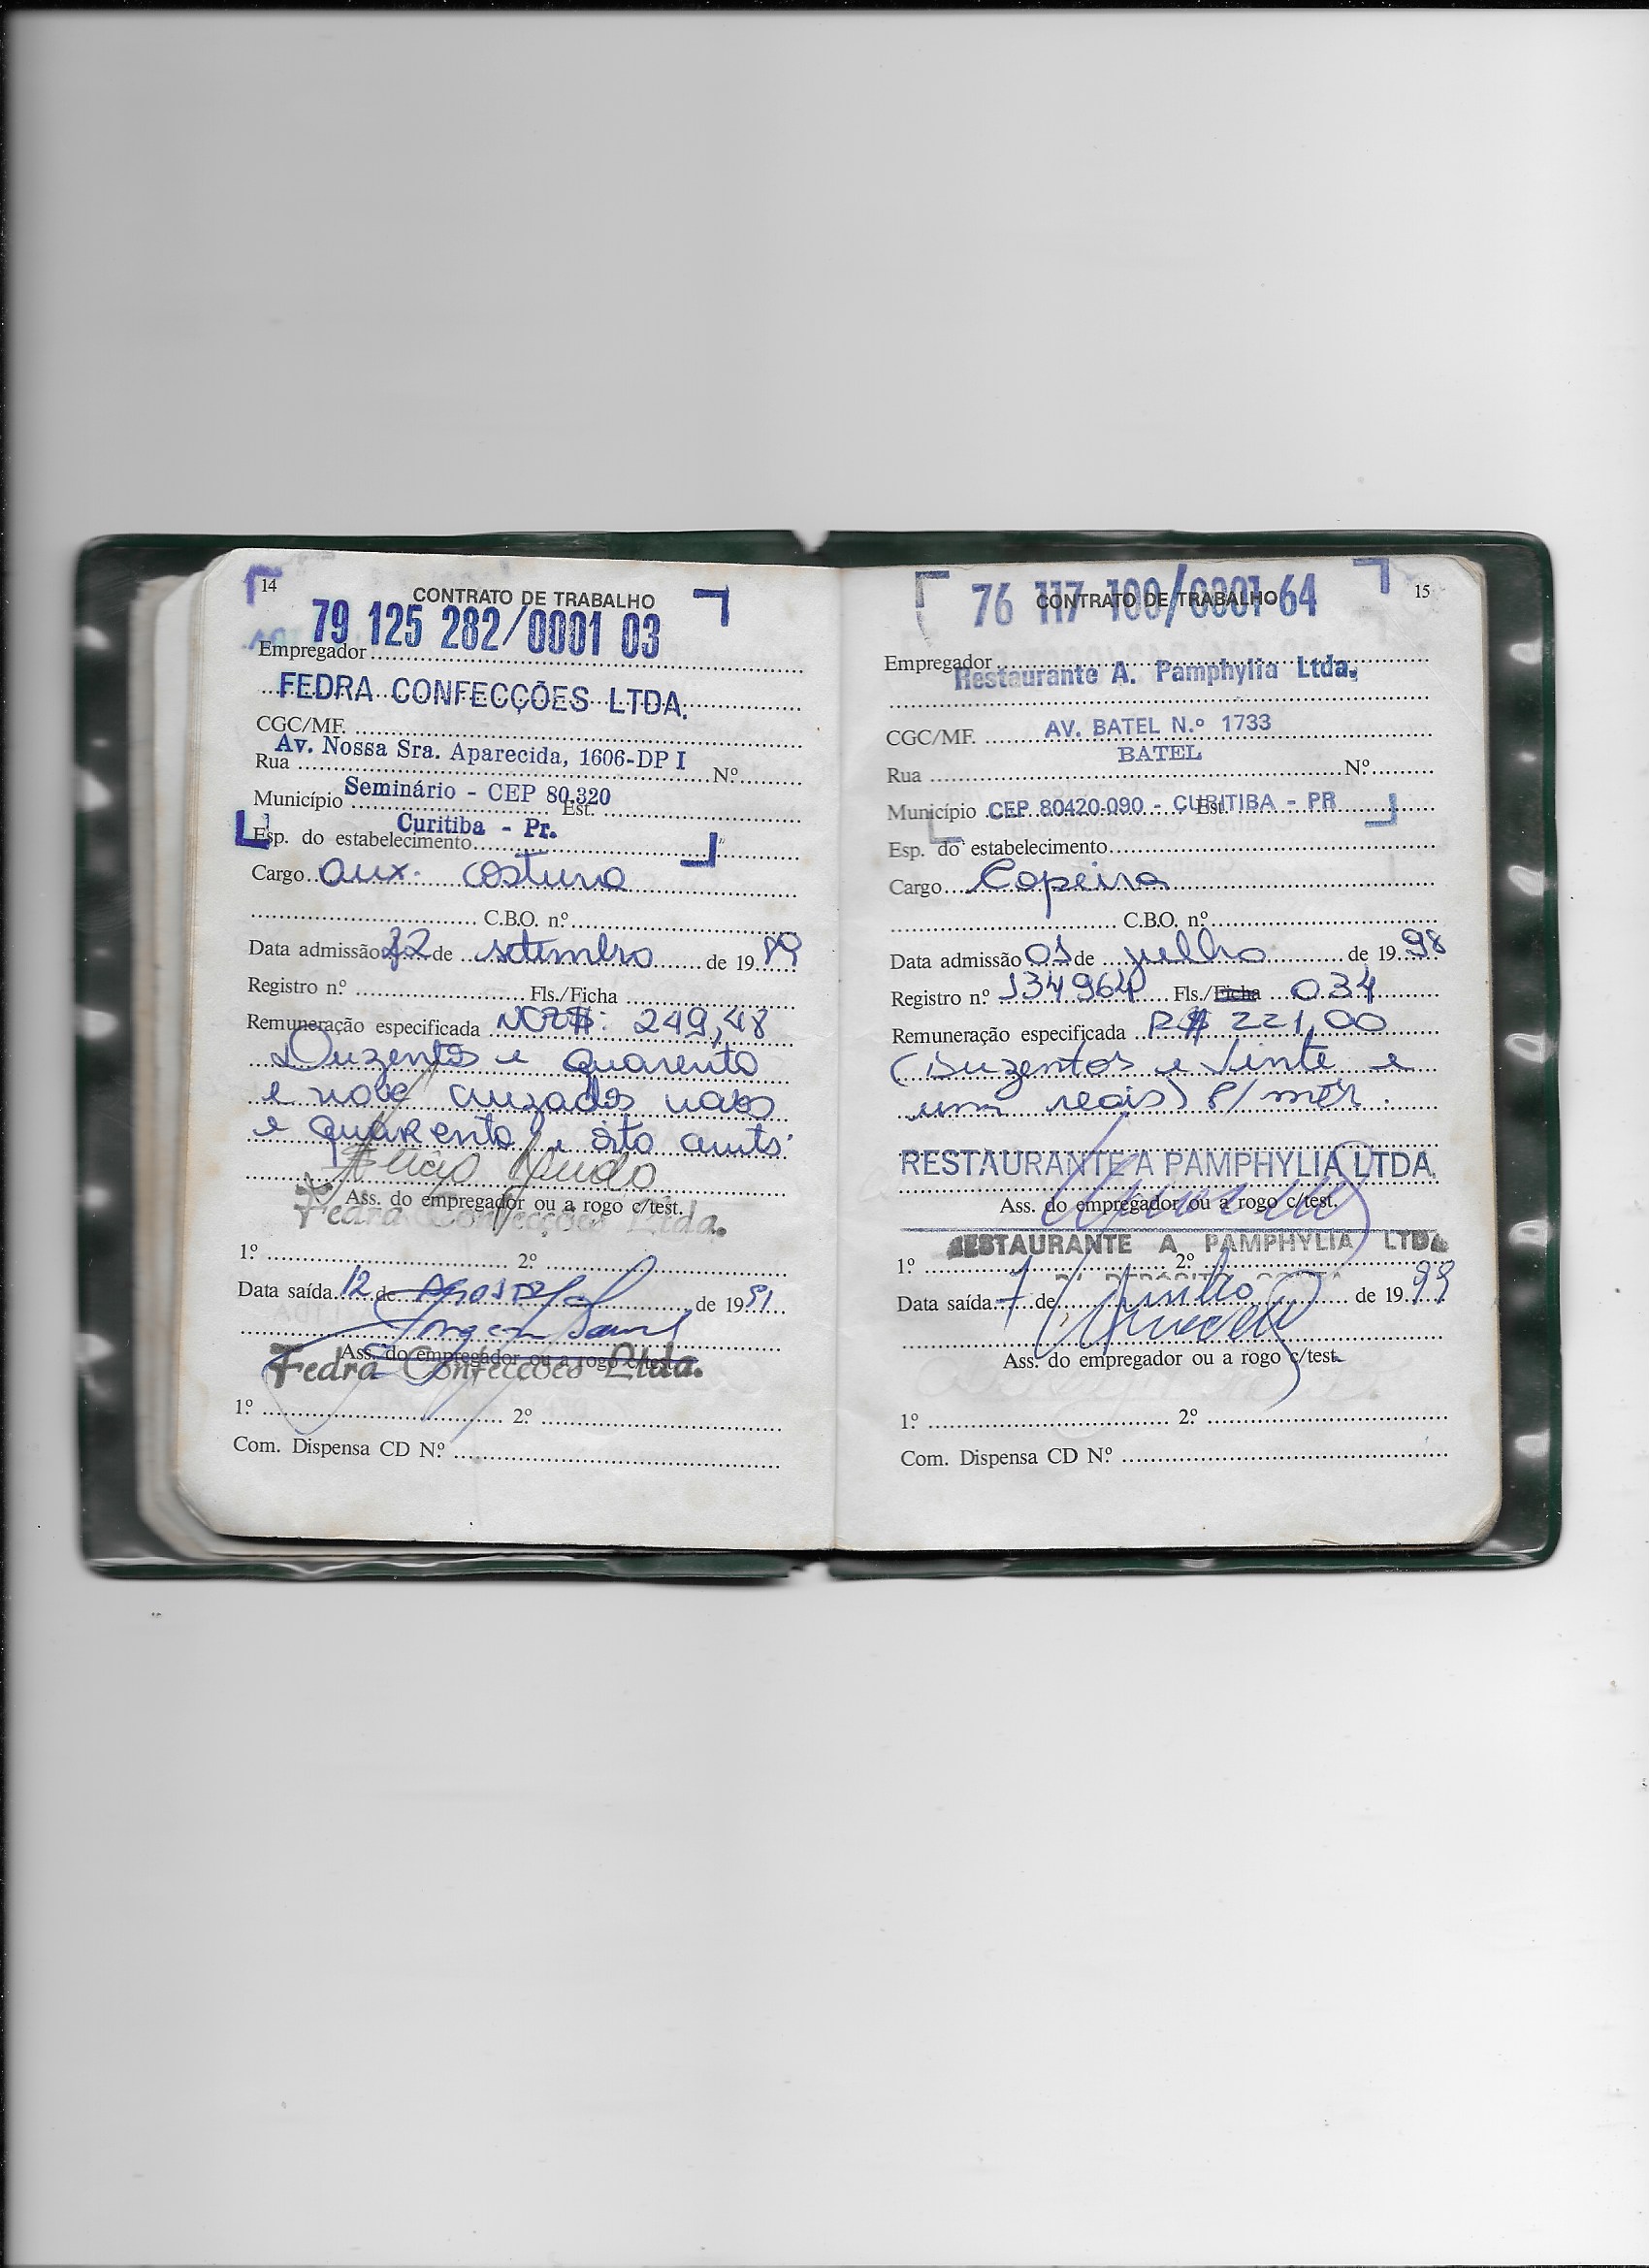 14
CONTRATO DE TRABALHO
79 125 282/0001 03
Empregador
FEDRA CONFECÇÕES LTDA.
CGC/MF.
Av. Nossa Sra. Aparecida, 1606-DP I
Rua Nº
Seminário - CEP 80.320
Município Est.
Curitiba - Pr.
Esp. do estabelecimento
Cargo aux. costura
C.B.O. nº
Data admissão 22 de setembro de 19 89
Registro nº Fls./Ficha
Remuneração especificada NCZ$: 249,48
Duzentos e quarenta
e nove cruzados novos
e quarenta e oito
Ass. do empregador ou a rogo c/test.
Fedra Confecções Ltda.
1º 2º
Data saída 12 de Agosto de 19 91
Ass. do empregador ou a rogo c/test.
Fedra Confecções Ltda.
1º 2º
Com. Dispensa CD Nº
15
76 117 100/0001 64
CONTRATO DE TRABALHO
Empregador
Restaurante A. Pamphylia Ltda.
CGC/MF. AV. BATEL N.º 1733
BATEL
Rua Nº
Município CEP 80420-090 - CURITIBA - PR Est.
Esp. do estabelecimento
Cargo Copeira
C.B.O. nº
Data admissão 01 de julho de 19 98
Registro nº 134964 Fls./Ficha 034
Remuneração especificada R$ 221,00
(Duzentos e vinte e
um reais) P/ mês.
RESTAURANTE A PAMPHYLIA LTDA.
Ass. do empregador ou a rogo c/test.
RESTAURANTE A PAMPHYLIA LTDA
1º 2º
Data saída 7 de Junho de 19 99
Ass. do empregador ou a rogo c/test.
1º 2º
Com. Dispensa CD Nº